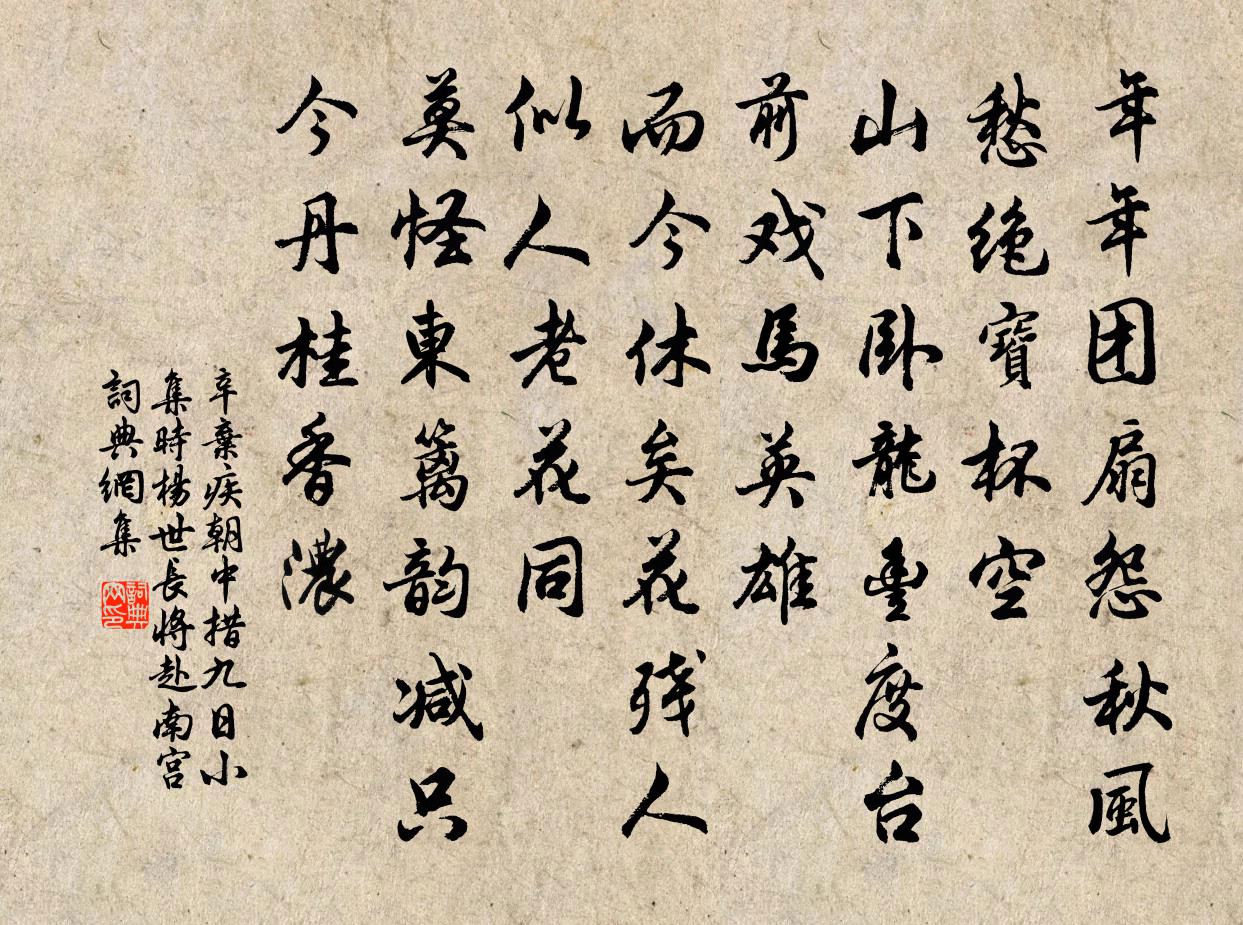 年年团扇怨秋風
愁绝寶杯空
山下卧龍豊度台
前戏馬英雄
而今休矣花残人
似人老花同
莫怪東篱韵减只
今丹桂香濃
辛棄疾朝中措九日小
集時楊世長将赴南宫
詞典網集
詞典网印